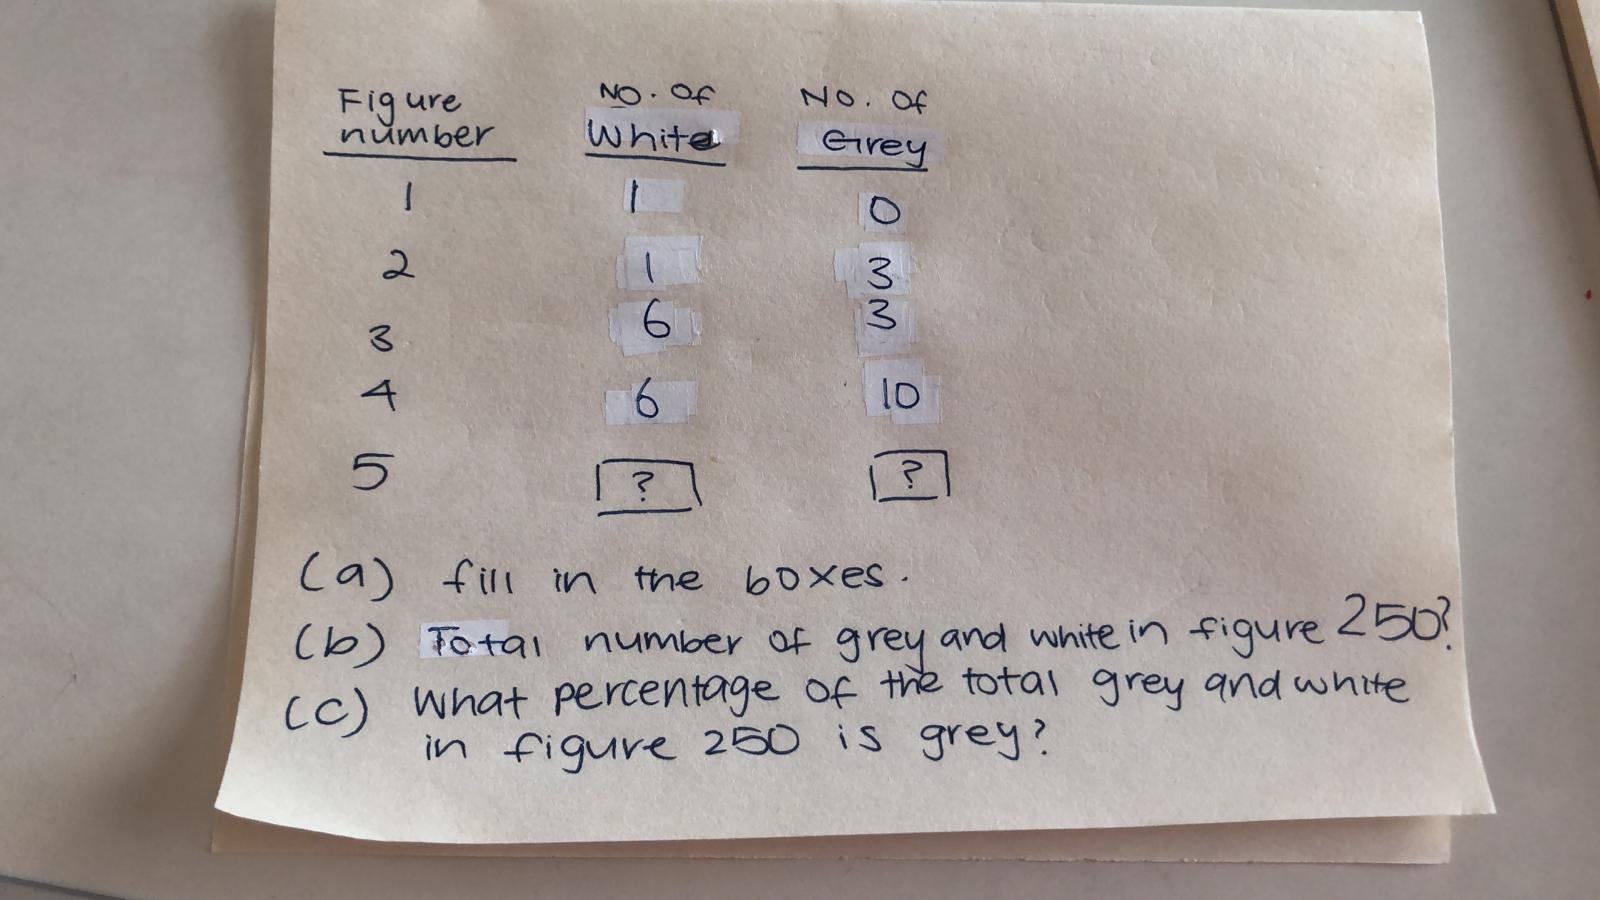 Figure number No. Of White No. Of Grey
1 1 0
2 1 3
3 6 3
4 6 10
5 ? ?
(a) fill in the boxes.
(b) Total number of grey and white in figure 250?
(c) What percentage of the total grey and white
in figure 250 is grey?